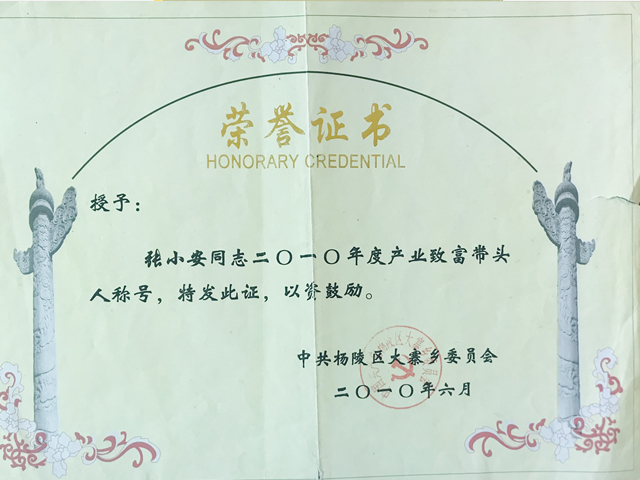 荣誉证书
HONORARY CREDENTIAL
授予：
张小安同志二〇一〇年度产业致富带头
人称号，特发此证，以资鼓励。
中共杨陵区大寨乡委员会
二〇一〇年六月